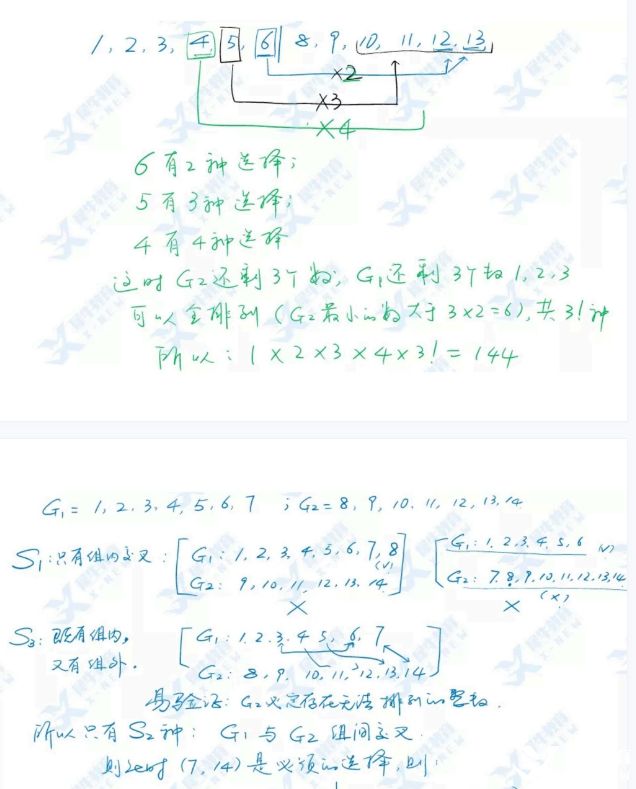 1, 2, 3, 4, 5, 6, 8, 9, 10, 11, 12, 13
×2
×3
×4
6有2种选择;
5有3种选择;
4有4种选择
这时G2还剩3个数, G1还剩3个数1, 2, 3
可以全排列(G2最小的数大于3×2=6), 共3!种
所以: 1×2×3×4×3! = 144
G1 = 1, 2, 3, 4, 5, 6, 7 ; G2 = 8, 9, 10, 11, 12, 13, 14
S1: 只有组内交叉: [G1: 1, 2, 3, 4, 5, 6, 7, 8 (√) [G1: 1, 2, 3, 4, 5, 6 (√)
G2: 9, 10, 11, 12, 13, 14] G2: 7, 8, 9, 10, 11, 12, 13, 14
× × (×)
S2: 既有组内, [G1: 1, 2, 3, 4, 5, 6, 7
又有组外. G2: 8, 9, 10, 11, 12, 13, 14]
易验证: G2必定存在无法排列的整数.
所以只有S2种: G1与G2组间交叉.
则此时(7, 14)是必须的选择, 则: